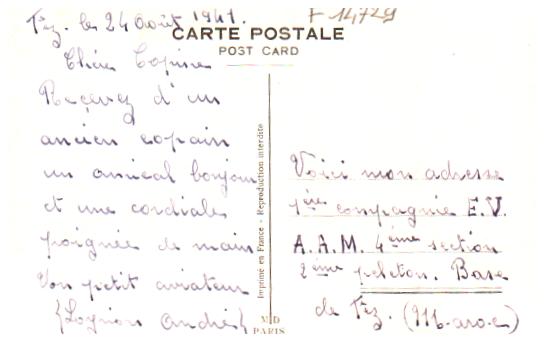 Fez. le 24 Août 1941.
F 14729
CARTE POSTALE
POST CARD
Chère Copine
Reçevez d'un
ancien copain
un amical bonjour
et une cordiale
poignée de main
Ton petit aviateur
André
Imprimé en France - Reproduction interdite
MD
PARIS
Voici mon adresse
1ère compagnie E.V.
A.A.M. 4ème section
2ème peloton. Base
de Fez. (Maroc)